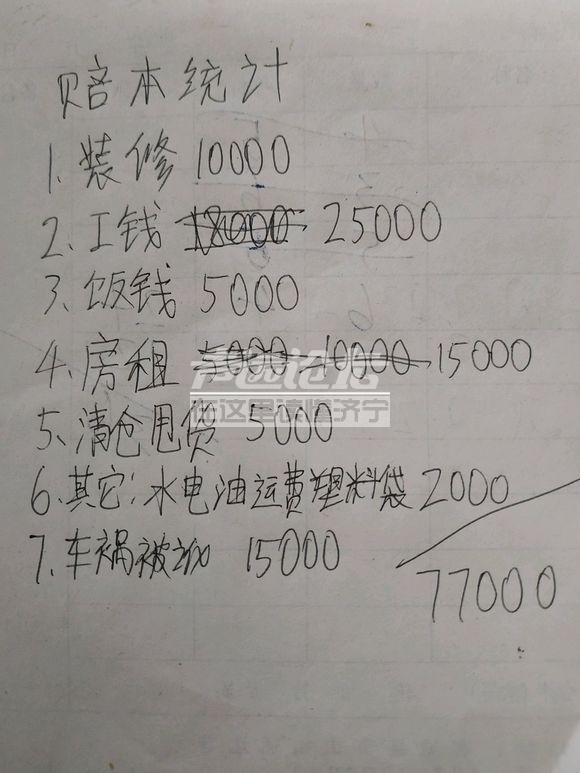 赔本统计
1、装修 10000
2、工钱 18000 25000
3、饭钱 5000
4、房租 5000 10000 15000
5、清仓甩货 5000
6、其它:水电油运费塑料袋 2000
7、车祸被 15000
77000
声远论坛
在这里读懂济宁